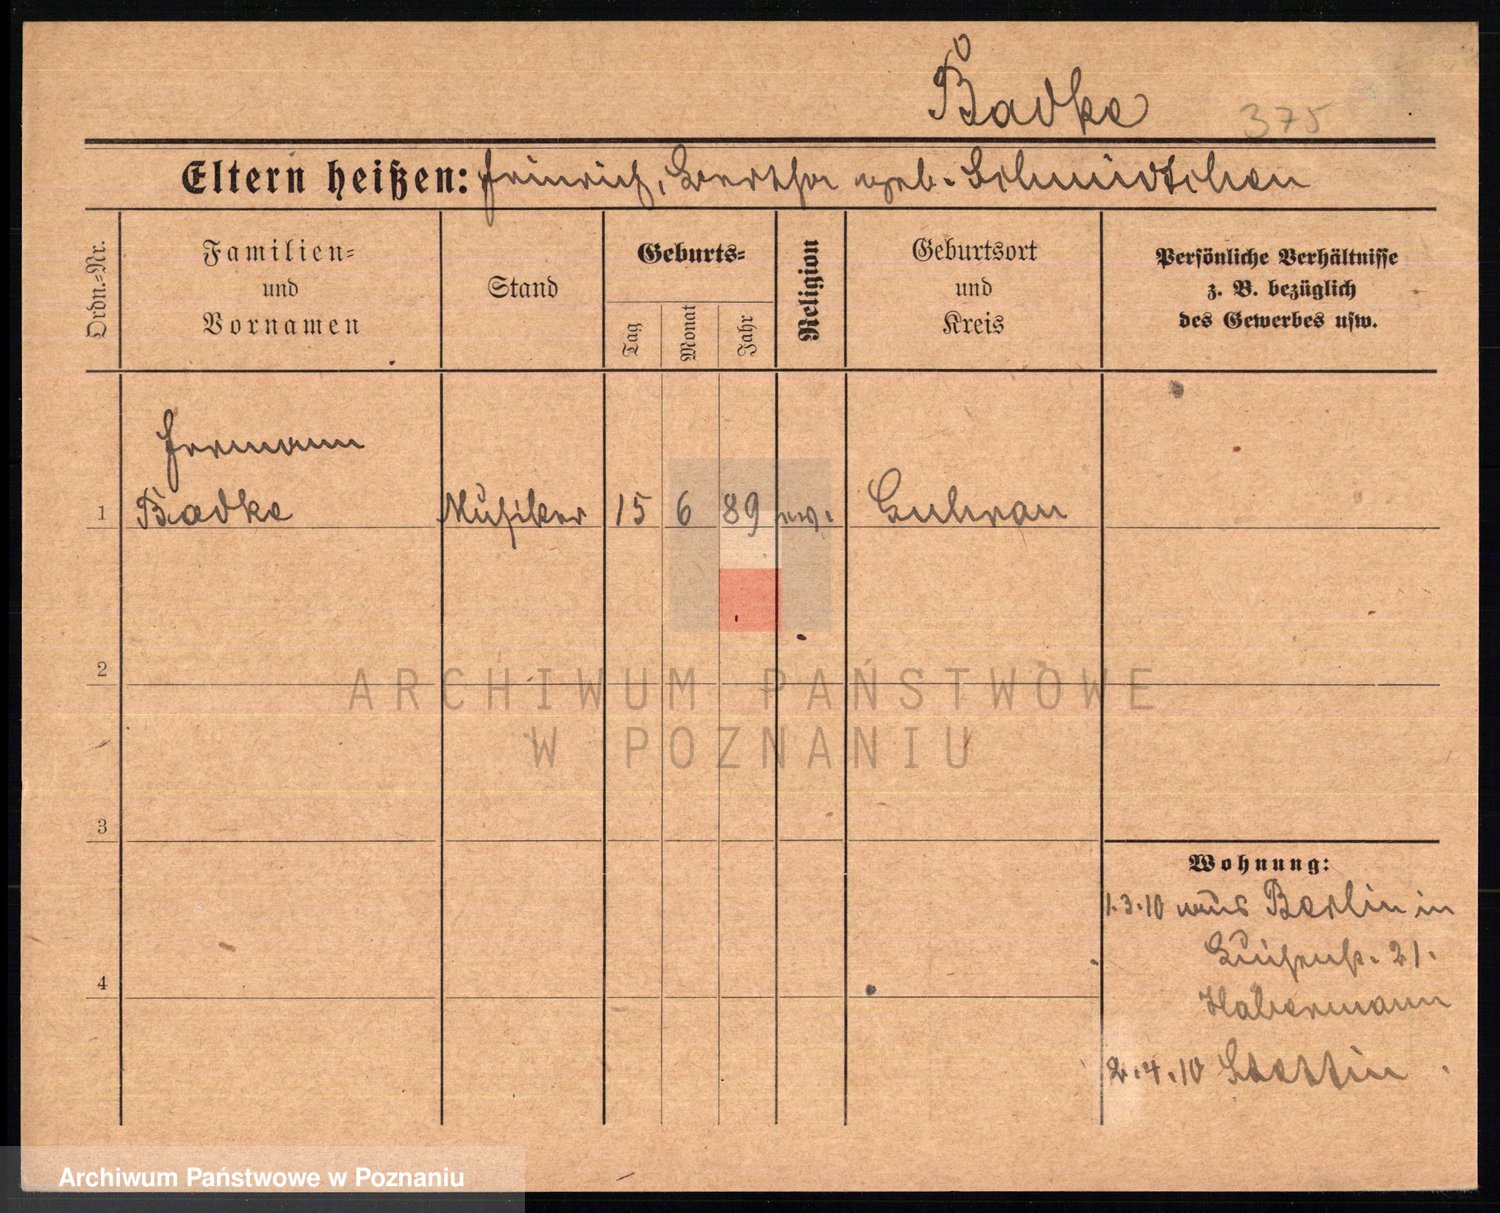 Badke
375
Eltern heißen: Heinrich, Bertha geb. Schmidtchen
Ordn.-Nr.
Familien- und Vornamen
Stand
Geburts-
Tag
Monat
Jahr
Religion
Geburtsort und Kreis
Persönliche Verhältnisse
z. B. bezüglich
des Gewerbes usw.
Hermann
1 Badke Musiker 15 6 89 ev. Guhrau
2
ARCHIWUM PAŃSTWOWE
W POZNANIU
3
Wohnung:
1.3.10 aus Berlin in
Luisenstr. 21.
Habermann
4
2.4.10 Stettin
Archiwum Państwowe w Poznaniu